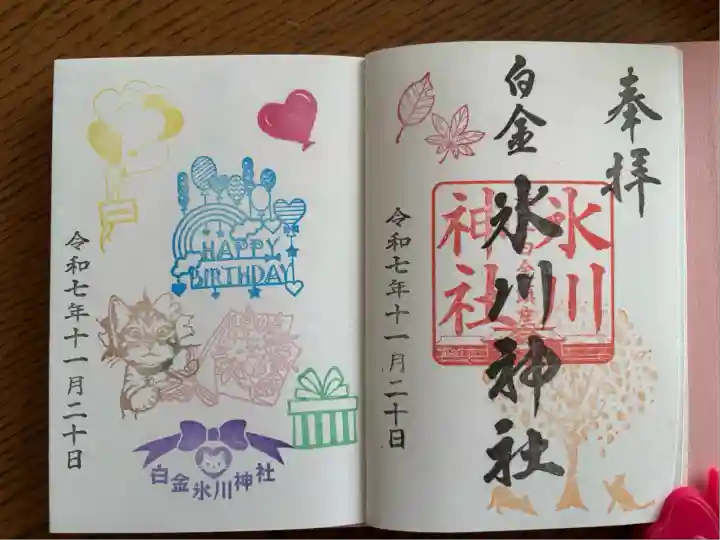 奉拝
白金
氷川神社
氷川
神社
令和七年十一月二十日
HAPPY
BIRTHDAY
令和七年十一月二十日
白金氷川神社